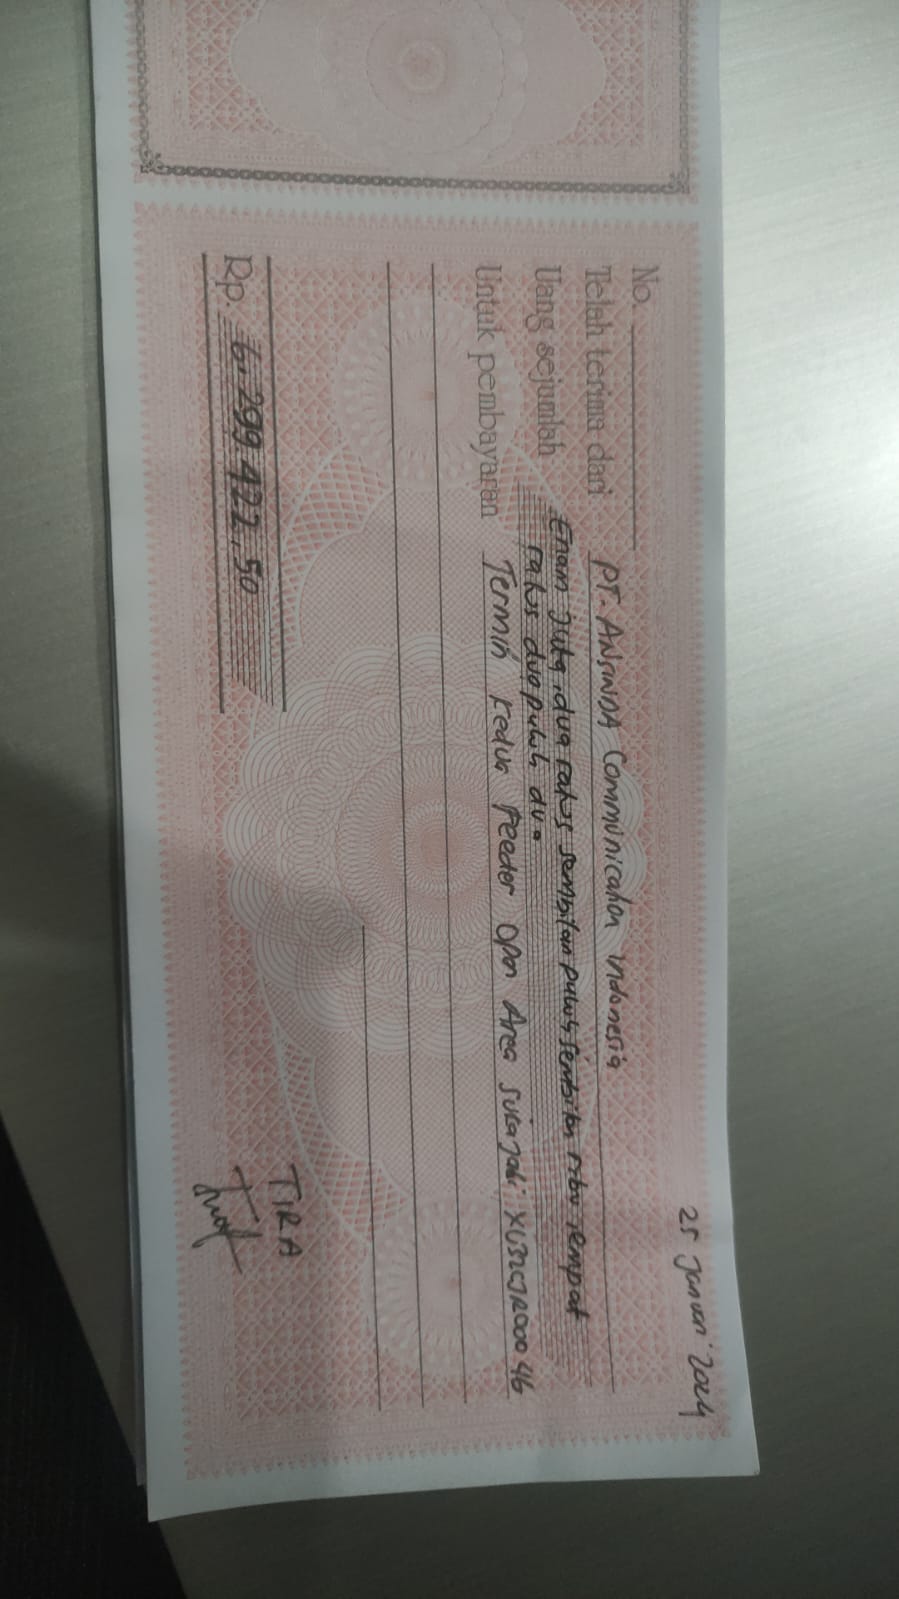 25 Januari 2024
No.
Telah terima dari PT. ANSINDA Communication Indonesia
Uang sejumlah Enam juta dua ratus sembilan puluh sembilan ribu empat
ratus dua puluh dua
Untuk pembayaran Termin kedua Feeder Opn Area sukajadi
Rp 6.299.422,50
TIRA